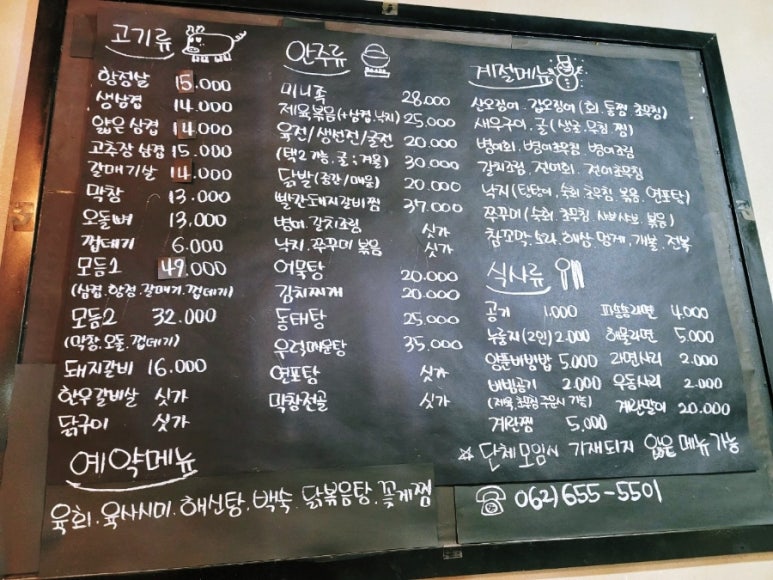 고기류
항정살 15.000
생삼겹 14.000
얇은 삼겹 14.000
고추장 삼겹 15.000
갈매기살 14.000
막창 13.000
오돌뼈 13.000
껍데기 6.000
모듬1 49.000
(삼겹.항정.갈매기.껍데기)
모듬2 32.000
(막창.오돌.껍데기)
돼지갈비 16.000
한우갈비살 싯가
닭구이 싯가
예약메뉴
육회.육사시미.해신탕.백숙.닭볶음탕.꽃게찜
안주류
미니족 28.000
제육볶음(+삼겹,낙지) 25.000
육전/생선전/굴전 20.000
(택2 가능.굴:겨울) 30.000
닭발(순한/매움) 20.000
빨간돼지갈비찜 37.000
병어.갈치조림 싯가
낙지.쭈꾸미 볶음 싯가
어묵탕 20.000
김치찌개 20.000
동태탕 25.000
우럭매운탕 35.000
연포탕 싯가
막창전골 싯가
계절메뉴
산오징어.갑오징어(회.통찜.초무침)
새우구이.굴(생굴.무침.찜)
병어회.병어초무침.병어조림
갈치조림.전어회.전어초무침
낙지(탕탕이.숙회.초무침.볶음.연포탕)
쭈꾸미(숙회.초무침.샤브샤브.볶음)
참꼬막.소라.해삼.멍게.개불.전복
식사류
공기 1.000 파송송라면 4.000
누룽지(2인) 2.000 해물라면 5.000
양푼비빔밥 5.000 라면사리 2.000
비빔공기 2.000 우동사리 2.000
(제육.초무침 주문시 가능) 계란말이 20.000
계란찜 5.000
☆ 단체 모임시 기재되지 않은 메뉴 가능
☎ 062)655-5501